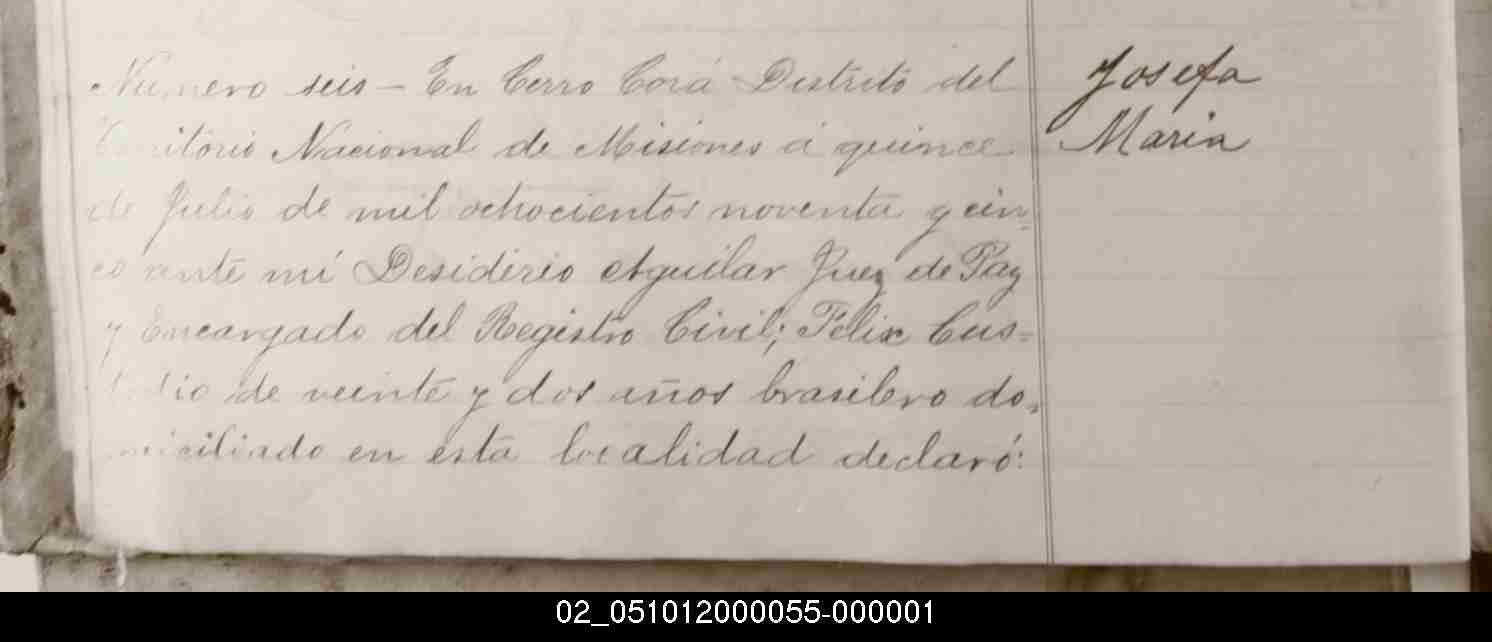 Numero seis - En Cerro Corá Distrito del
Territorio Nacional de Misiones á quince
de Julio de mil ochocientos noventa y cin-
co ante mí Desiderio Aguilar Juez de Paz
y Encargado del Registro Civil; Felix Cus-
todio de veinte y dos años brasilero do-
miciliado en esta localidad declaró:
Josefa
Maria
02_051012000055-000001